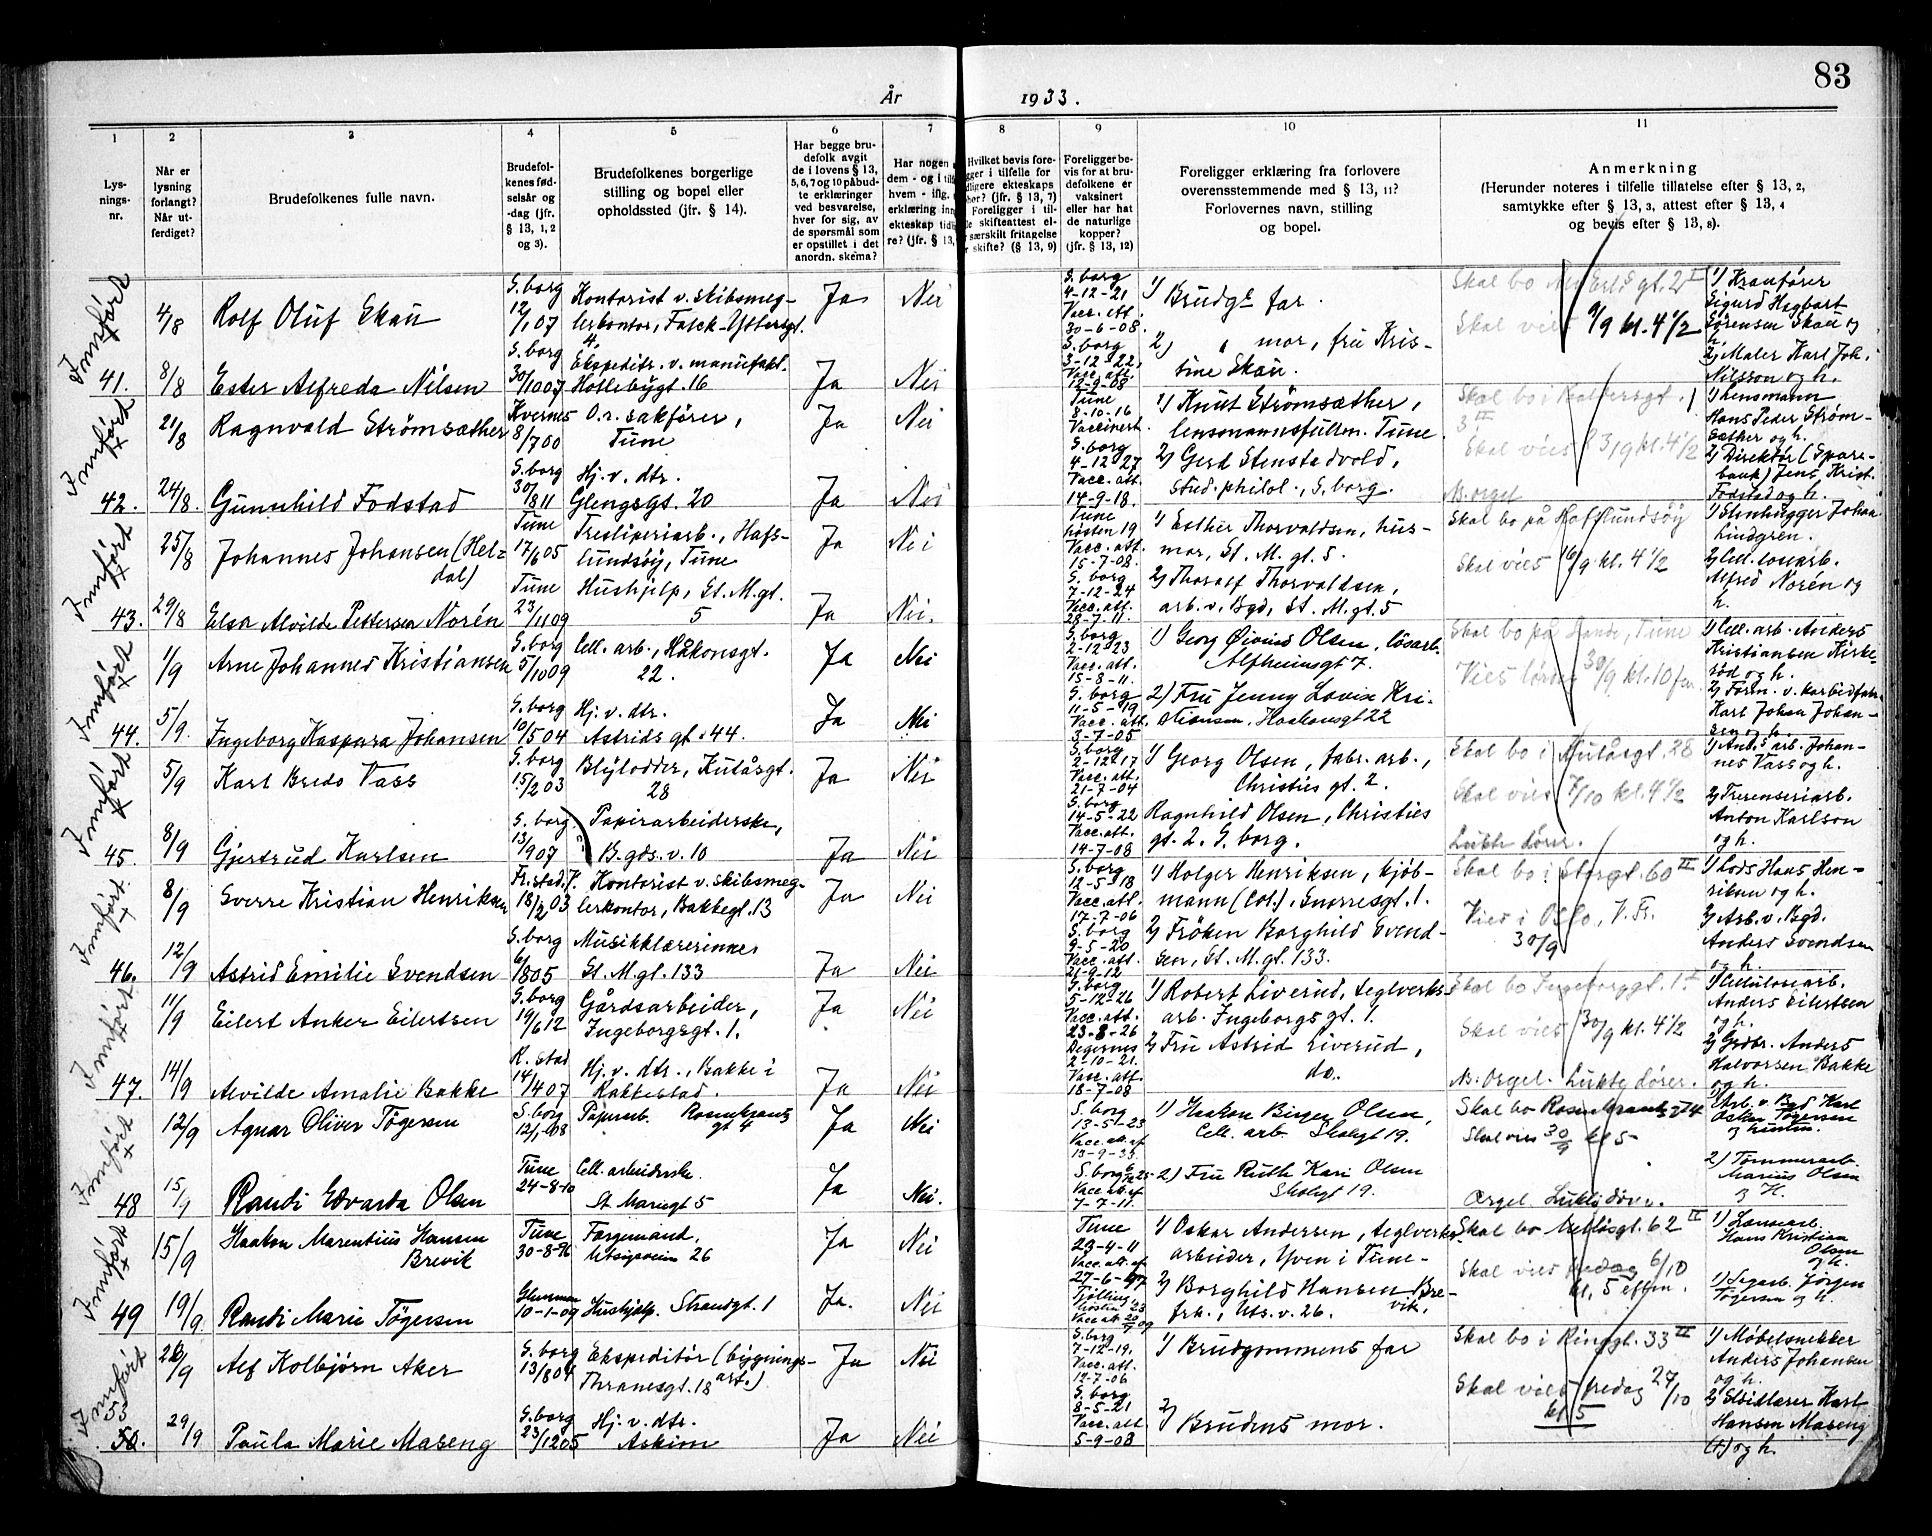 83
År 1933.
1 2 3 4 5 6 7 8 9 10 11
Lys-
nings-
nr.
Når er
lysning
forlangt?
Når ut-
ferdiget?
Brudefolkenes fulle navn.
Brudefol-
kenes fød-
selsår og
-dag (jfr.
§ 13, 1, 2
og 3).
Brudefolkenes borgerlige
stilling og bopel eller
opholdssted (jfr. § 14).
Har begge bru-
defolk avgit
de i lovens § 13,
5, 6, 7 og 10 påbud-
te erklæringer
ved besvarelse,
hver for sig, av
de spørsmål som
er opstillet i det
anordn. skema?
Har nogen
dem - og i
hvem - ifig.
erklæring inn
ekteskap tid
re? (jfr. § 13,
Hvilket bevis fore-
gger i tilfelle for
dligere ekteskaps
hør? (jfr. § 13, 7)
Foreligger i til-
le skifteattest el-
særskilt fritagelse
skifte? (§ 13, 9)
Foreligger be-
vis for at bru-
defolkene er
vaksinert
eller har hat
de naturlige
kopper?
(jfr. § 13, 12)
Foreligger erklæring fra forlovere
overensstemmende med § 13, 11?
Forlovernes navn, stilling
og bopel.
Anmerkning
(Herunder noteres i tilfelle tillatelse efter § 13, 2,
samtykke efter § 13, 3, attest efter § 13, 4
og bevis efter § 13, 8).
Innført
4/8 Rolf Oluf Skau
S.borg
12/1 07
Kontorist v. skibsmeg-
lerkontor, Falck-Yttersgt.
4.
Ja Nei
S. borg
4-12-21
Vacc. att.
30-6-08.
1) Brudg. far.
Skal bo
gt. 2 II
Skal vies 9/9 kl. 4 1/2
1) Kranfører
Sigurd Hagbart
Sørensen Skau og
h.
41. 8/8 Ester Alfreda Nilsen
S.borg
30/10 07
Ekspeditr. v. manufakt.
Hollebygt. 16
Ja Nei
S.borg
3-12-22
Vacc. att.
12-9-08
2) " mor, fru Kris-
tine Skau.
2) Maler Karl Joh.
Nilsson og h.
Innført
21/8 Ragnvald Strømsæther
Kvernes
8/7 00
O.r. sakfører,
Tune
Ja Nei
Tune
8-10-16
Vaccinert.
1) Knut Strømsæther,
lensmannsfullm. Tune.
Skal bo i
3. II
Skal vies 23/9 kl. 4 1/2
1) Lensmann
Hans Peder Strøm-
sæther og h.
42. 24/8. Gunnhild Fodstad
S.borg
30/1 811
Hj. v. dtr.
Glengsgt. 20
Ja Nei
S.borg
4-12 27
Vacc. att.
14-9-18.
2) Gerd Stenstadvold,
stud. philol., S. borg.
M. orgel
2) Direktør (Spare-
bank) Jens Krist.
Fodstad og h.
Innført
25/8 Johannes Johansen (Hel-
dal)
Tune
17/6 05
Tresliperiarb., Hafs-
lundsøy, Tune
Ja Nei
Tune
høsten 19
Vacc. att.
15-7-08.
1) Esther Thorvaldsen, hus-
mor, St. M. gt. 5.
Skal bo på Hafslundsøy
Skal vies 16/9 kl. 4 1/2
1) Stenhugger Johan
Lindgren.
43. 29/8 Elsa Alvilde Pettersen Norén
Tune
23/11 09
Hushjelp, St. M. gt.
5
Ja Nei.
S. borg
7-12-24
Vacc. att.
28-7-11.
2) Thoralf Thorvaldsen,
arb. v. Bgd, St. M. gt. 5
2) Cell. losearb.
Alfred Norén og
h.
Innført
1/9 Arne Johannes Kristiansen
S.borg
5/10 09
Cell. arb., Håkonsgt.
22.
Ja Nei
S.borg
2-12-23
Vacc. att.
15-8-11.
1) Georg Øivind Olsen, løsarb.
Alfheimsgt 7.
Skal bo på Sande, Tune
Vies lørdag 30/9 kl. 10 fm.
1) Cell. arb. Anders
Kristiansen Kirke-
rød og h.
44. 5/9. Ingeborg Kaspara Johansen
S.borg
10/5 04
Hj. v. dtr.
Astrids gt. 44.
Ja Nei
S. borg
11-5-19
Vacc. att.
3-7-05
2) Fru Jenny Lovise Kri-
stiansen, Haakonsgt 22
2) Form. v. karbidfabr.
Karl Johan Johan-
sen og h.
Innført
5/9 Karl Bredo Vass
S.borg
15/2 03
Blylodder, Kulåsgt.
28
Ja Nei
S.borg
2-12-17
Vacc. att.
21-7-04
1) Georg Olsen, fabr. arb.,
Christies gt. 2.
Skal bo i Kulåsgt. 28
Skal vies 7/10 kl. 4 1/2
1) Anl.s arb. Johan-
nes Vass og h.
45. 8/9 Gjertrud Karlsen
S.borg.
13/9 07
Papirarbeiderske,
B.gds. v. 10
Ja Nei
S.borg
14-5-22
Vacc. att.
14-7-08
Ragnhild Olsen, Christies
gt. 2. S. borg.
Lukte dører.
2) Treenseriarb.
Anton Karlson
og h.
Innført
8/9 Sverre Kristian Henriksen
Fr.stad,
18/2 03
Kontorist v. skibsmeg-
lerkontor, Bakkegt. 13
Ja Nei
S.borg
12-5-18
Vacc. att.
17-7-06
1) Holger Henriksen, kjøb-
mann (Col.), Snorresgt. 1.
Skal bo i Storgt. 60 II
Vies i Oslo, V. Fr.
30/9
1) Lods Hans Hen-
riksen og h.
46. 12/9 Astrid Emilie Svendsen
S.borg
6/8 05
Musikklærerinne,
St. M. gt. 133
Ja Nei
S. borg
9-5-20
Vacc. att.
21-9-12
2) Frøken Borghild Svend-
sen, St. M. gt. 133.
2) Arb. v. Bgd.
Anders Svendsen
og h.
Innført
11/9 Eilert Anker Eilertsen
S.borg
19/6 12
Gårdsarbeider,
Ingeborgsgt. 1.
Ja Nei
S.borg
5-12-26
Vacc. att.
23-8-26
1) Robert Liverud, teglverks-
arb. Ingeborgs gt. 1.
Skal bo Ingeborggt. 1. I
Skal vies 30/9 kl. 4 1/2
1) Cellulosearb.
Anders Eilertsen
og h.
47. 14/9 Alvilde Amalie Bakke
R.stad
14/4 07
Hj. v. dtr., Bakke i
Rakkestad.
Ja Nei
Degernes
2-10-21.
Vacc. att.
18-7-08
2) Fru Astrid Liverud,
do.
M. Orgel. Lukte dører.
2) Grdbr. Anders
Halvorsen Bakke
og h.
Innført
12/9 Agnar Oliver Tögersen
S.borg
12/1-08
Papirarb. Rosenkrantz
gt 4
Ja Nei
S. borg
13-5-23
Vacc. att. af
13-9-33.
1) Haakon Birger Olsen,
Cell. arb. Skolegt 19.
Skal bo Rosenkrantz gt 4
Skal vies 30/9 kl 5-
1) Arb. v. Bgd Karl
Oskar Tögersen
og hustru.
48 15/9 Randi Edvarda Olsen
Tune
24-8-10
Cell. arbeiderske.
St Mariegt 5
Ja Nei.
S.borg 6/ 25
Vacc. att. af
7-7-11.
2) Fru Ruth Kari Olsen
Skolegt 19.
Orgel. Lukte döre.
2) Tømmerarb.
Marius Olsen
og H.
Innført
15/9 Haakon Marentius Hansen
Brevik
Tune
30-8-96
Fargemand,
Utsigtveien 26
Ja Nei
Tune
23-4-11
Vacc. att. af
27-6-97
1) Oskar Andersen, teglverks-
arbeider, Yven i Tune-
Skal bo gt. 62 II
Skal vies fredag 6/10
kl. 5 eftm.
1) Lansearb.
Hans Kristian
Olsen
og h.
49 19/9. Randi Marie Tögersen
Glemmen
10-1-09
Hushjelp. Strandgt. 1
Ja. Nei
Tjölling
høsten 23
Vacc att. 20/7 09
2) Borghild Hansen Bre-
vik,
frk., Uts. v. 26.
1) Sagarb. Jörgen
Tögersen og h.
Innført
26/9 Alf Kolbjørn Aker
S.borg
13/8 04
Ekspeditør (bygnings-
art.)
Thranesgt. 18
Ja Nei
S.borg
7-12-19.
Vacc. att.
12-7-06
1) Brudgommens far
Skal bo i Ringgt. 33 II
Skal vies fredag 27/10
kl 5
1) Møbelsnekker
Anders Johansen
og h.
50. 29/9 Paula Marie Maseng
S.borg
23/12 05
Hj. v. dtr.
Askim
Ja Nei
S. borg
8-5-21
Vacc. att
5-9-08
2) Brudens mor.
2) Skidlærer Karl
Hansen Maseng
(†) og h.